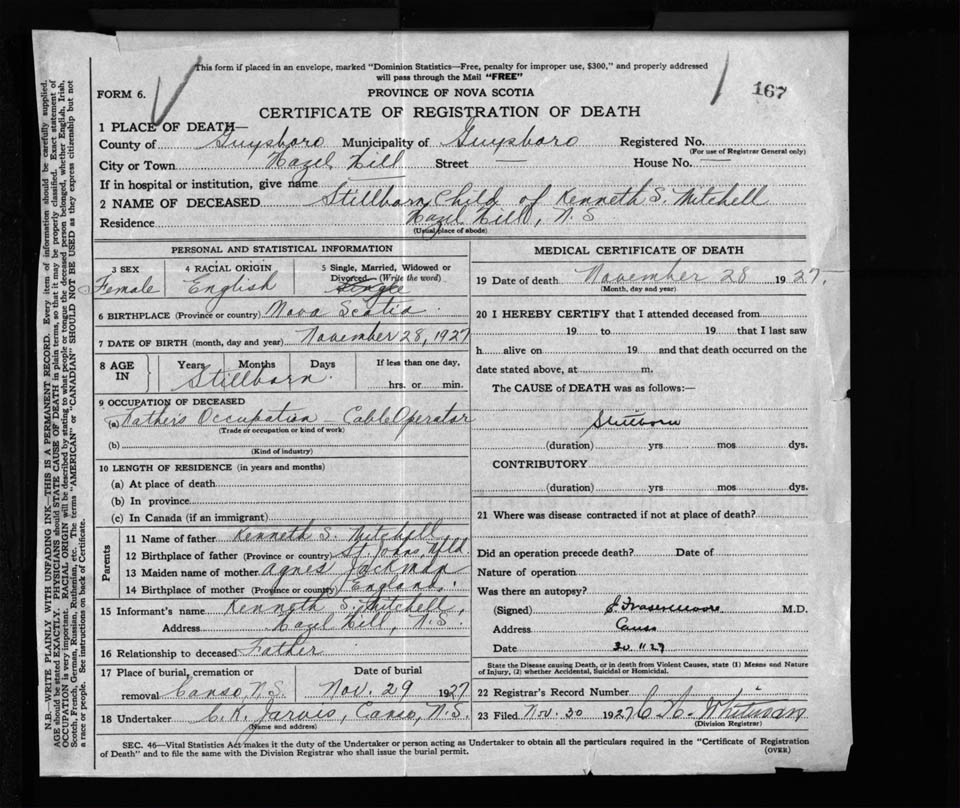 This form if placed in an envelope, marked "Dominion Statistics—Free, penalty for improper use, $300," and properly addressed
will pass through the Mail "FREE"
FORM 6. PROVINCE OF NOVA SCOTIA 167
CERTIFICATE OF REGISTRATION OF DEATH
1 PLACE OF DEATH—
County of Guysboro Municipality of Guysboro Registered No.
(For use of Registrar General only)
City or Town Hazel Hill Street — House No. —
If in hospital or institution, give name
2 NAME OF DECEASED Stillborn Child of Kenneth S. Mitchell
Residence Hazel Hill, N.S
(Usual place of abode)
PERSONAL AND STATISTICAL INFORMATION
3 SEX 4 RACIAL ORIGIN 5 Single, Married, Widowed or
Divorced (Write the word)
Female English Single
6 BIRTHPLACE (Province or country) Nova Scotia
7 DATE OF BIRTH (month, day and year) November 28, 1927
8 AGE IN Years Months Days If less than one day,
Stillborn. hrs. or min.
9 OCCUPATION OF DECEASED
(a) Father's Occupation Cable Operator
(Trade or occupation or kind of work)
(b)
(Kind of industry)
10 LENGTH OF RESIDENCE (in years and months)
(a) At place of death
(b) In province
(c) In Canada (if an immigrant)
Parents
11 Name of father Kenneth S. Mitchell
12 Birthplace of father (Province or country) St. Johns, Nfld.
13 Maiden name of mother Agnes Jackman
14 Birthplace of mother (Province or country) England.
15 Informant's name Kenneth S. Mitchell,
Address Hazel Hill, N.S.
16 Relationship to deceased Father
17 Place of burial, cremation or Date of burial
removal Canso, N.S. Nov. 29 1927
18 Undertaker C. K. Jarvis, Canso, N.S.
(Name and address)
MEDICAL CERTIFICATE OF DEATH
19 Date of death November 28 1927.
(Month, day and year)
20 I HEREBY CERTIFY that I attended deceased from
19 to 19 that I last saw
h alive on 19 and that death occurred on the
date stated above, at m.
The CAUSE of DEATH was as follows:—
Stillborn
(duration) yrs mos dys.
CONTRIBUTORY
(duration) yrs mos dys.
21 Where was disease contracted if not at place of death?
Did an operation precede death? Date of
Nature of operation
Was there an autopsy?
(Signed) J Fraser Moore M.D.
Address Canso
Date 30 11 27
State the Disease causing Death, or in death from Violent Causes, state (1) Means and Nature
of Injury, (2) whether Accidental, Suicidal or Homicidal.
22 Registrar's Record Number
23 Filed Nov. 30 1927 C. H. Whitman
(Division Registrar)
SEC. 46—Vital Statistics Act makes it the duty of the Undertaker or person acting as Undertaker to obtain all the particulars required in the "Certificate of Registration
of Death" and to file the same with the Division Registrar who shall issue the burial permit. (OVER)
N.B.—WRITE PLAINLY WITH UNFADING INK—THIS IS A PERMANENT RECORD. Every item of information should be carefully supplied.
AGE should be stated EXACTLY. PHYSICIANS should STATE CAUSE OF DEATH in plain terms, so that it may be properly classified. Exact statement of
OCCUPATION is very important. RACIAL ORIGIN will be described by stating to what people or tongue the deceased person belonged, whether English, Irish,
Scotch, French, German, Russian, Ruthenian, etc. The terms "AMERICAN" or "CANADIAN" SHOULD NOT BE USED as they express citizenship but not
a race or people. See instructions on back of Certificate.